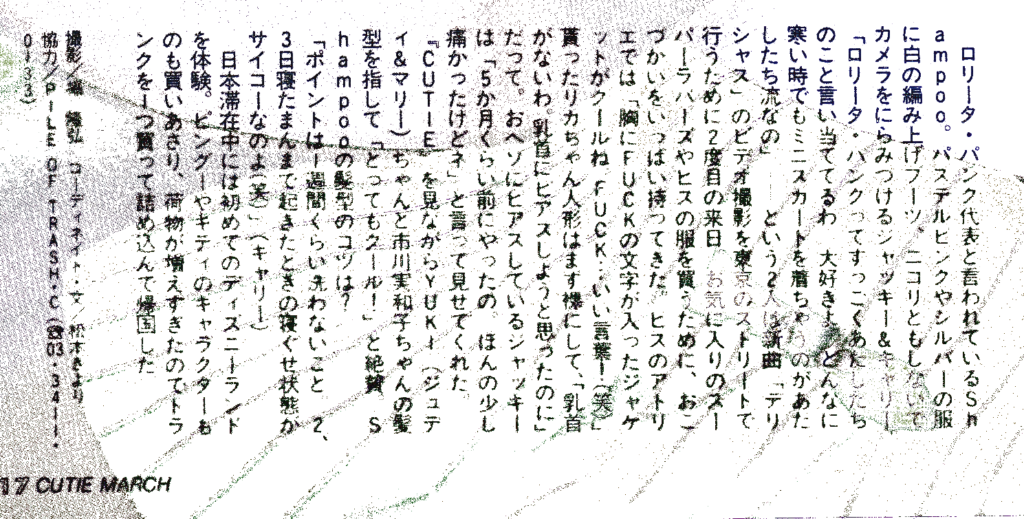 ロリータ・パンク代表と言われているSh
ampoo。パステルピンクやシルバーの服
に白の編み上げブーツ。ニコリともしないで
カメラをにらみつけるジャッキー&キャリー
「ロリータ・パンクってすっごくあたしたち
のこと言い当ててるわ 大好きよ どんなに
寒い時でもミニスカートを着ちゃうのがあた
したち流なの」 という2人は新曲「デリ
シャス」のビデオ撮影を東京のストリートで
行うために2度目の来日 お気に入りのスー
パーラバーズやヒスの服を買うために、おこ
づかいをいっぱい持ってきた。ヒスのアトリ
エでは「胸にFUCKの文字が入ったジャケ
ットがクールね FUCK…いい言葉!(笑)」
貰ったリカちゃん人形はまず裸にして、「乳首
がないわ 乳首にピアスしようと思ったのに」
だって。おヘソにピアスしているジャッキー
は「5か月くらい前にやったの。ほんの少し
痛かったけどネ」と言って見せてくれた
『CUTiE』を見ながらYUKI(ジュデ
ィ&マリー)ちゃんと市川実和子ちゃんの髪
型を指して「とってもクール!」と絶賛 S
hampooの髪型のコツは?
「ポイントは一週間くらい洗わないこと 2、
3日寝たまんまで起きたときの寝ぐせ状態が
サイコーなのよ(笑)」(キャリー)
日本滞在中には初めてのディズニーランド
を体験。ピングーやキティのキャラクターも
のも買いあさり、荷物が増えすぎたのでトラ
ンクを一つ買って詰め込んで帰国した
撮影/堀 隆弘 コーディネイト・文/松本きより
協力/PILE OF TRASH・C(☎03・3411・
0133)
17 CUTIE MARCH